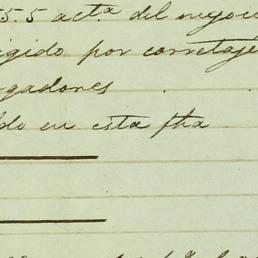 55.5 acta del negoci
igido por corretaje
gadores
do en esta fha